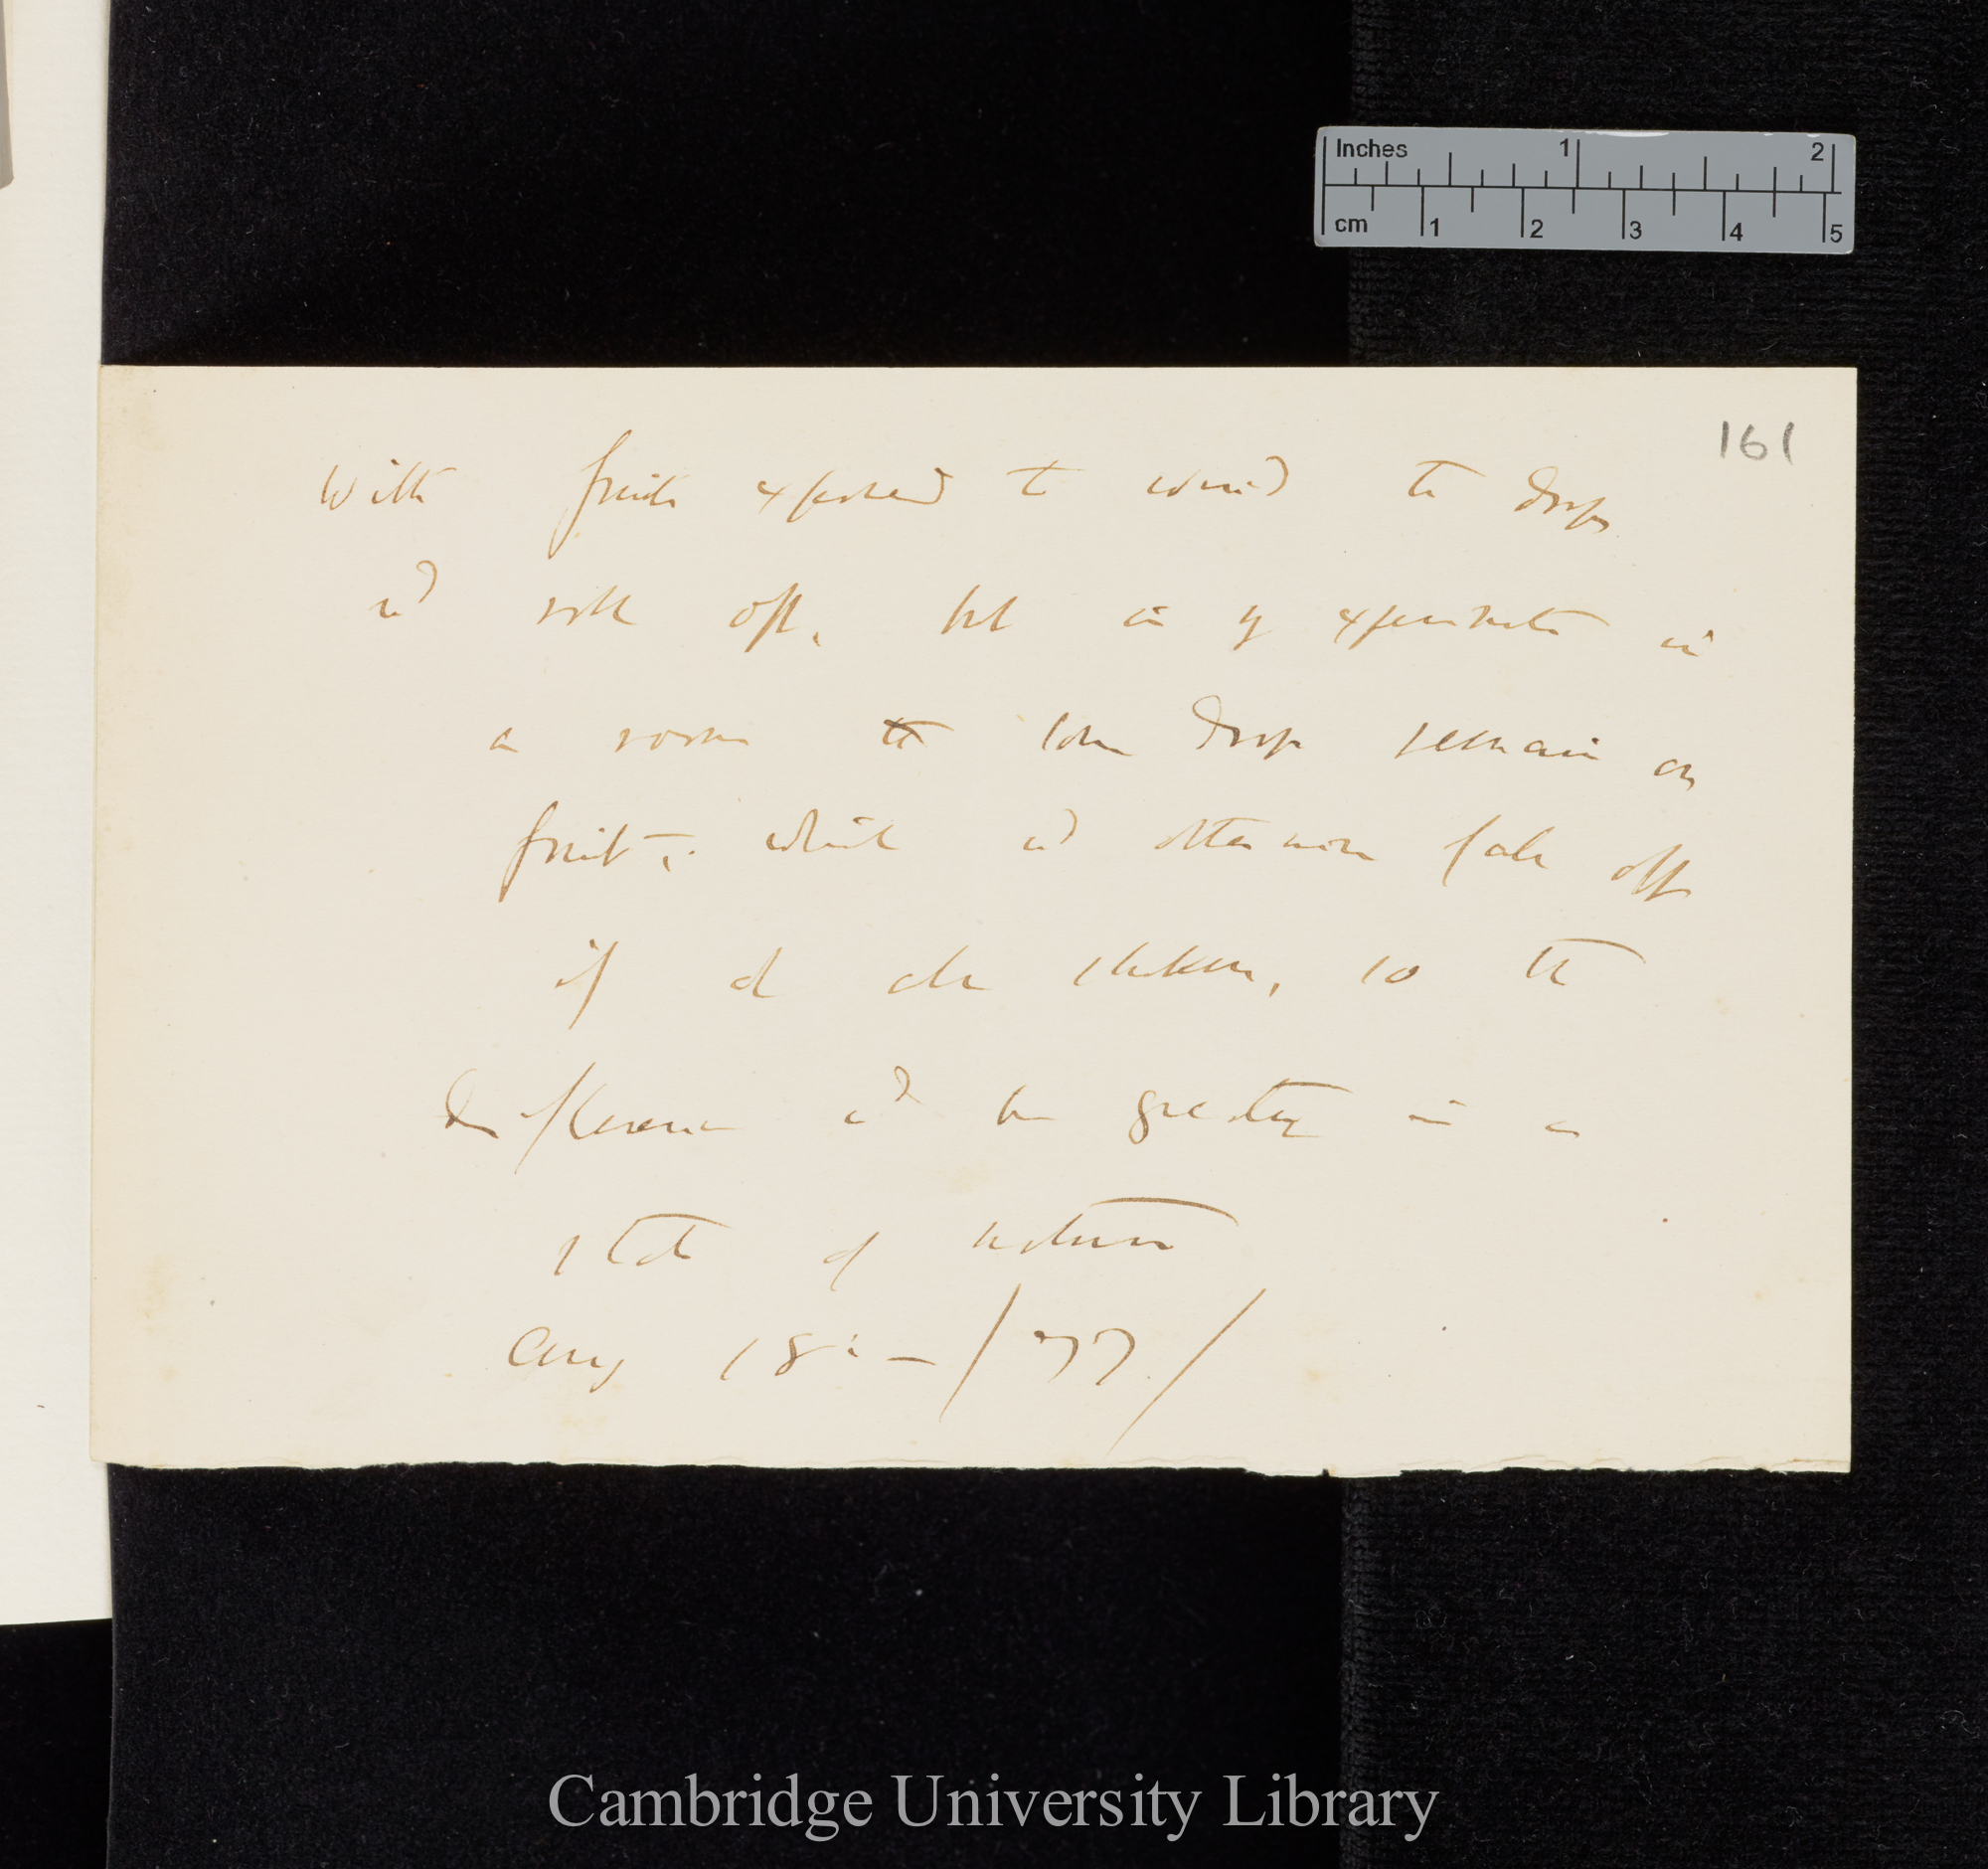 Inches 1 2
cm 1 2 3 4 5
161
With fruits exposed to wind the drops
wd roll off, but in my experiments in
a room the some drops remain on
fruit, which wd otherwise fall off
if at all shaken, so the
difference wd be greater in a
state of nature
Aug 18th — /77/
Cambridge University Library